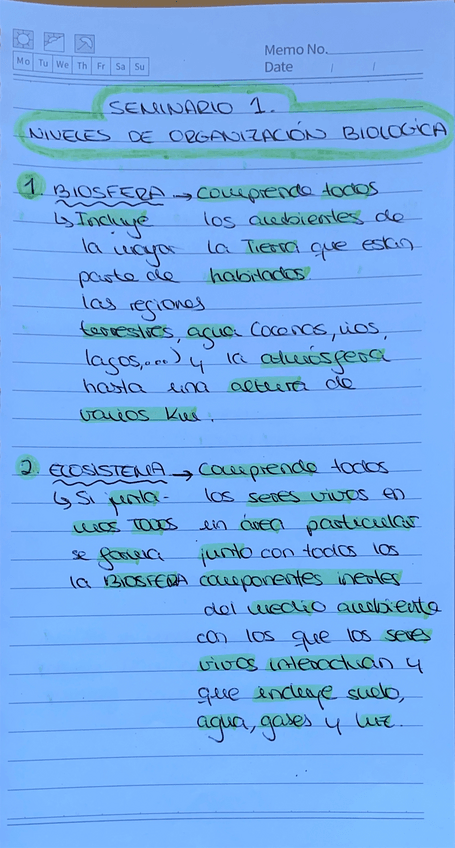 Memo No.
Mo Tu We Th Fr Sa Su
Date / /
SEMINARIO 1.
NIVELES DE ORGANIZACIÓN BIOLOGICA
1. BIOSFERA → comprende todos
↳ Incluye los ambientes de
la mayor la Tierra que estan
parte de habitados.
las regiones
terrestres, agua (oceanos, rios,
lagos,...) y la atmósfera
hasta una altura de
varios Km.
2. ECOSISTEMA → comprende todos
↳ Si junta- los seres vivos en
mos TODOS un área particular
se forma junto con todos los
la BIOSFERA componentes inertes
del medio ambiente
con los que los seres
vivos interactuan y
que incluye suelo,
agua, gases y luz.